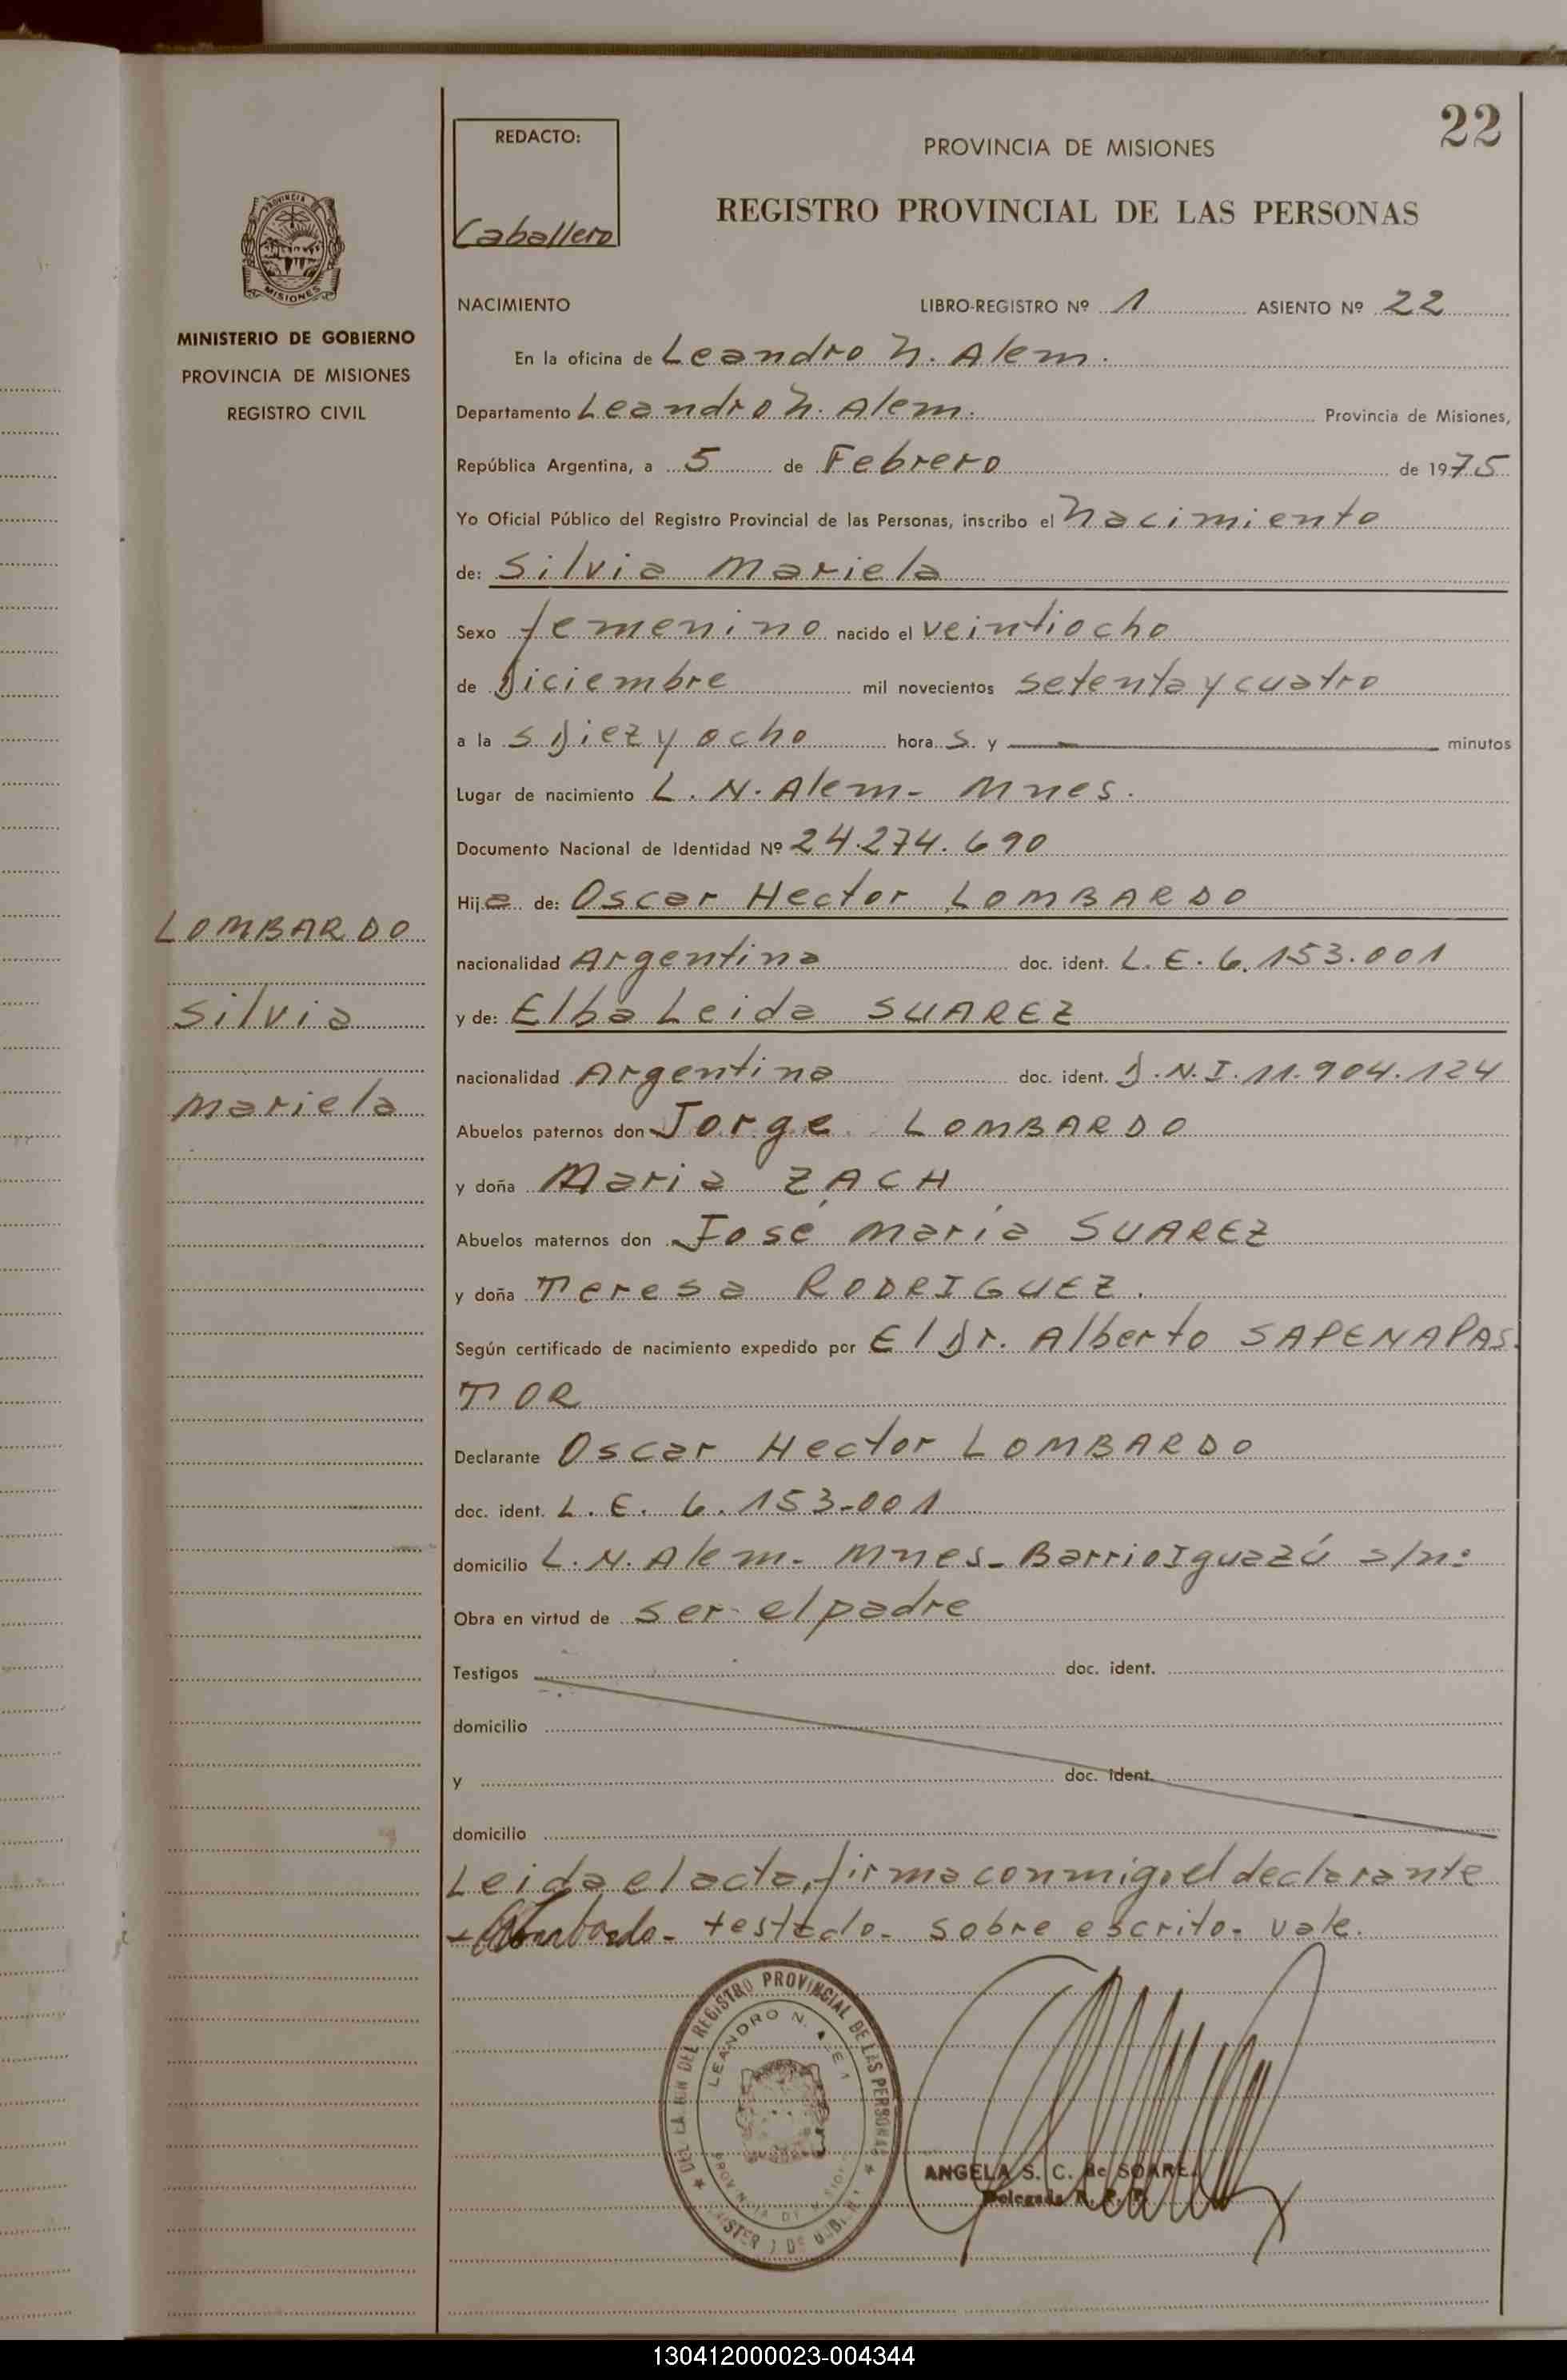 22
REDACTO:
Caballero
PROVINCIA DE MISIONES
REGISTRO PROVINCIAL DE LAS PERSONAS
PROVINCIA DE
MISIONES
MINISTERIO DE GOBIERNO
PROVINCIA DE MISIONES
REGISTRO CIVIL
NACIMIENTO LIBRO-REGISTRO Nº 1 ASIENTO Nº 22
En la oficina de Leandro N. Alem.
Departamento Leandro N. Alem. Provincia de Misiones,
República Argentina, a 5 de Febrero de 1975
Yo Oficial Público del Registro Provincial de las Personas, inscribo el Nacimiento
de: Silvia Mariela
Sexo femenino nacido el veintiocho
de Diciembre mil novecientos setenta y cuatro
a la s Diez y ocho hora s. y — minutos
Lugar de nacimiento L. N. Alem - Mnes.
Documento Nacional de Identidad Nº 24.274.690
Hija de: Oscar Hector LOMBARDO
nacionalidad Argentina doc. ident. L.E. 6.153.001
y de: Elba Leida SUAREZ
nacionalidad Argentina doc. ident. D.N.I. 11.904.124
Abuelos paternos don Jorge LOMBARDO
y doña Maria ZACH
Abuelos maternos don José María SUAREZ
y doña Teresa RODRIGUEZ.
Según certificado de nacimiento expedido por El Dr. Alberto SAPENAPAS-
TOR
Declarante Oscar Hector LOMBARDO
doc. ident. L.E. 6.153-001
domicilio L. N. Alem - Mnes - Barrio Iguazú s/nº
Obra en virtud de ser el padre
Testigos doc. ident.
domicilio
y doc. ident.
domicilio
Leida el acta, firma conmigo el declarante
- Lombardo - testado - sobre escrito - vale.
LOMBARDO
Silvia
Mariela
DEL REGISTRO PROVINCIAL DE LAS PERSONAS
LEANDRO N. ALEM
PROVINCIA DE MISIONES
ANGELA S. C. de SOARE
Delegada R. P. P.
130412000023-004344